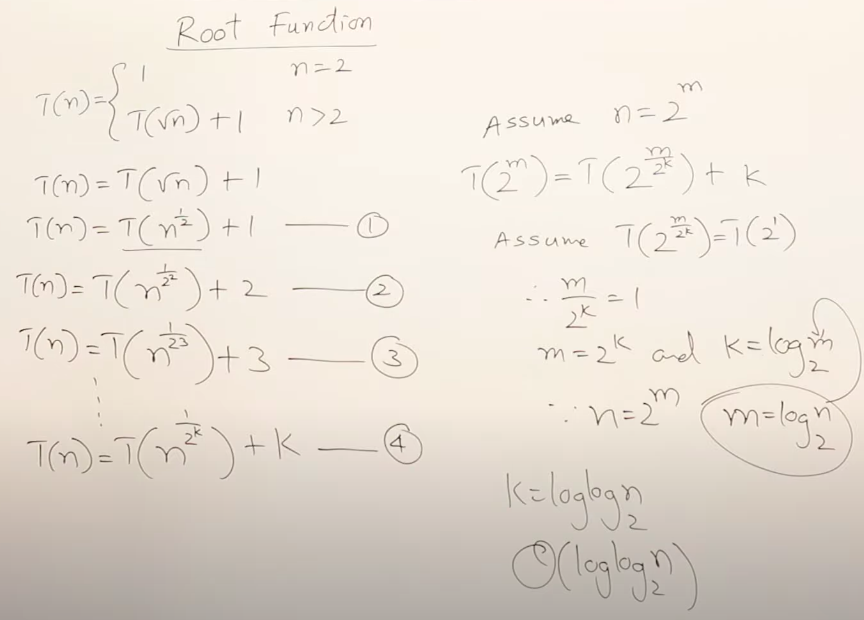 Root Function
T(n)={ 1 n=2
T(√n)+1 n>2
T(n)=T(√n)+1
T(n)=T(n^{1/2})+1 —— ①
T(n)=T(n^{1/2^2})+2 —— ②
T(n)=T(n^{1/23})+3 —— ③
T(n)=T(n^{1/2^k})+k —— ④
Assume n=2^m
T(2^m)=T(2^{m/2^k})+k
Assume T(2^{m/2^k})=T(2^1)
∴ m/2^k=1
m=2^k and k=log_2 m
∵ n=2^m m=log_2 n
k=loglog_2 n
O(loglog_2 n)